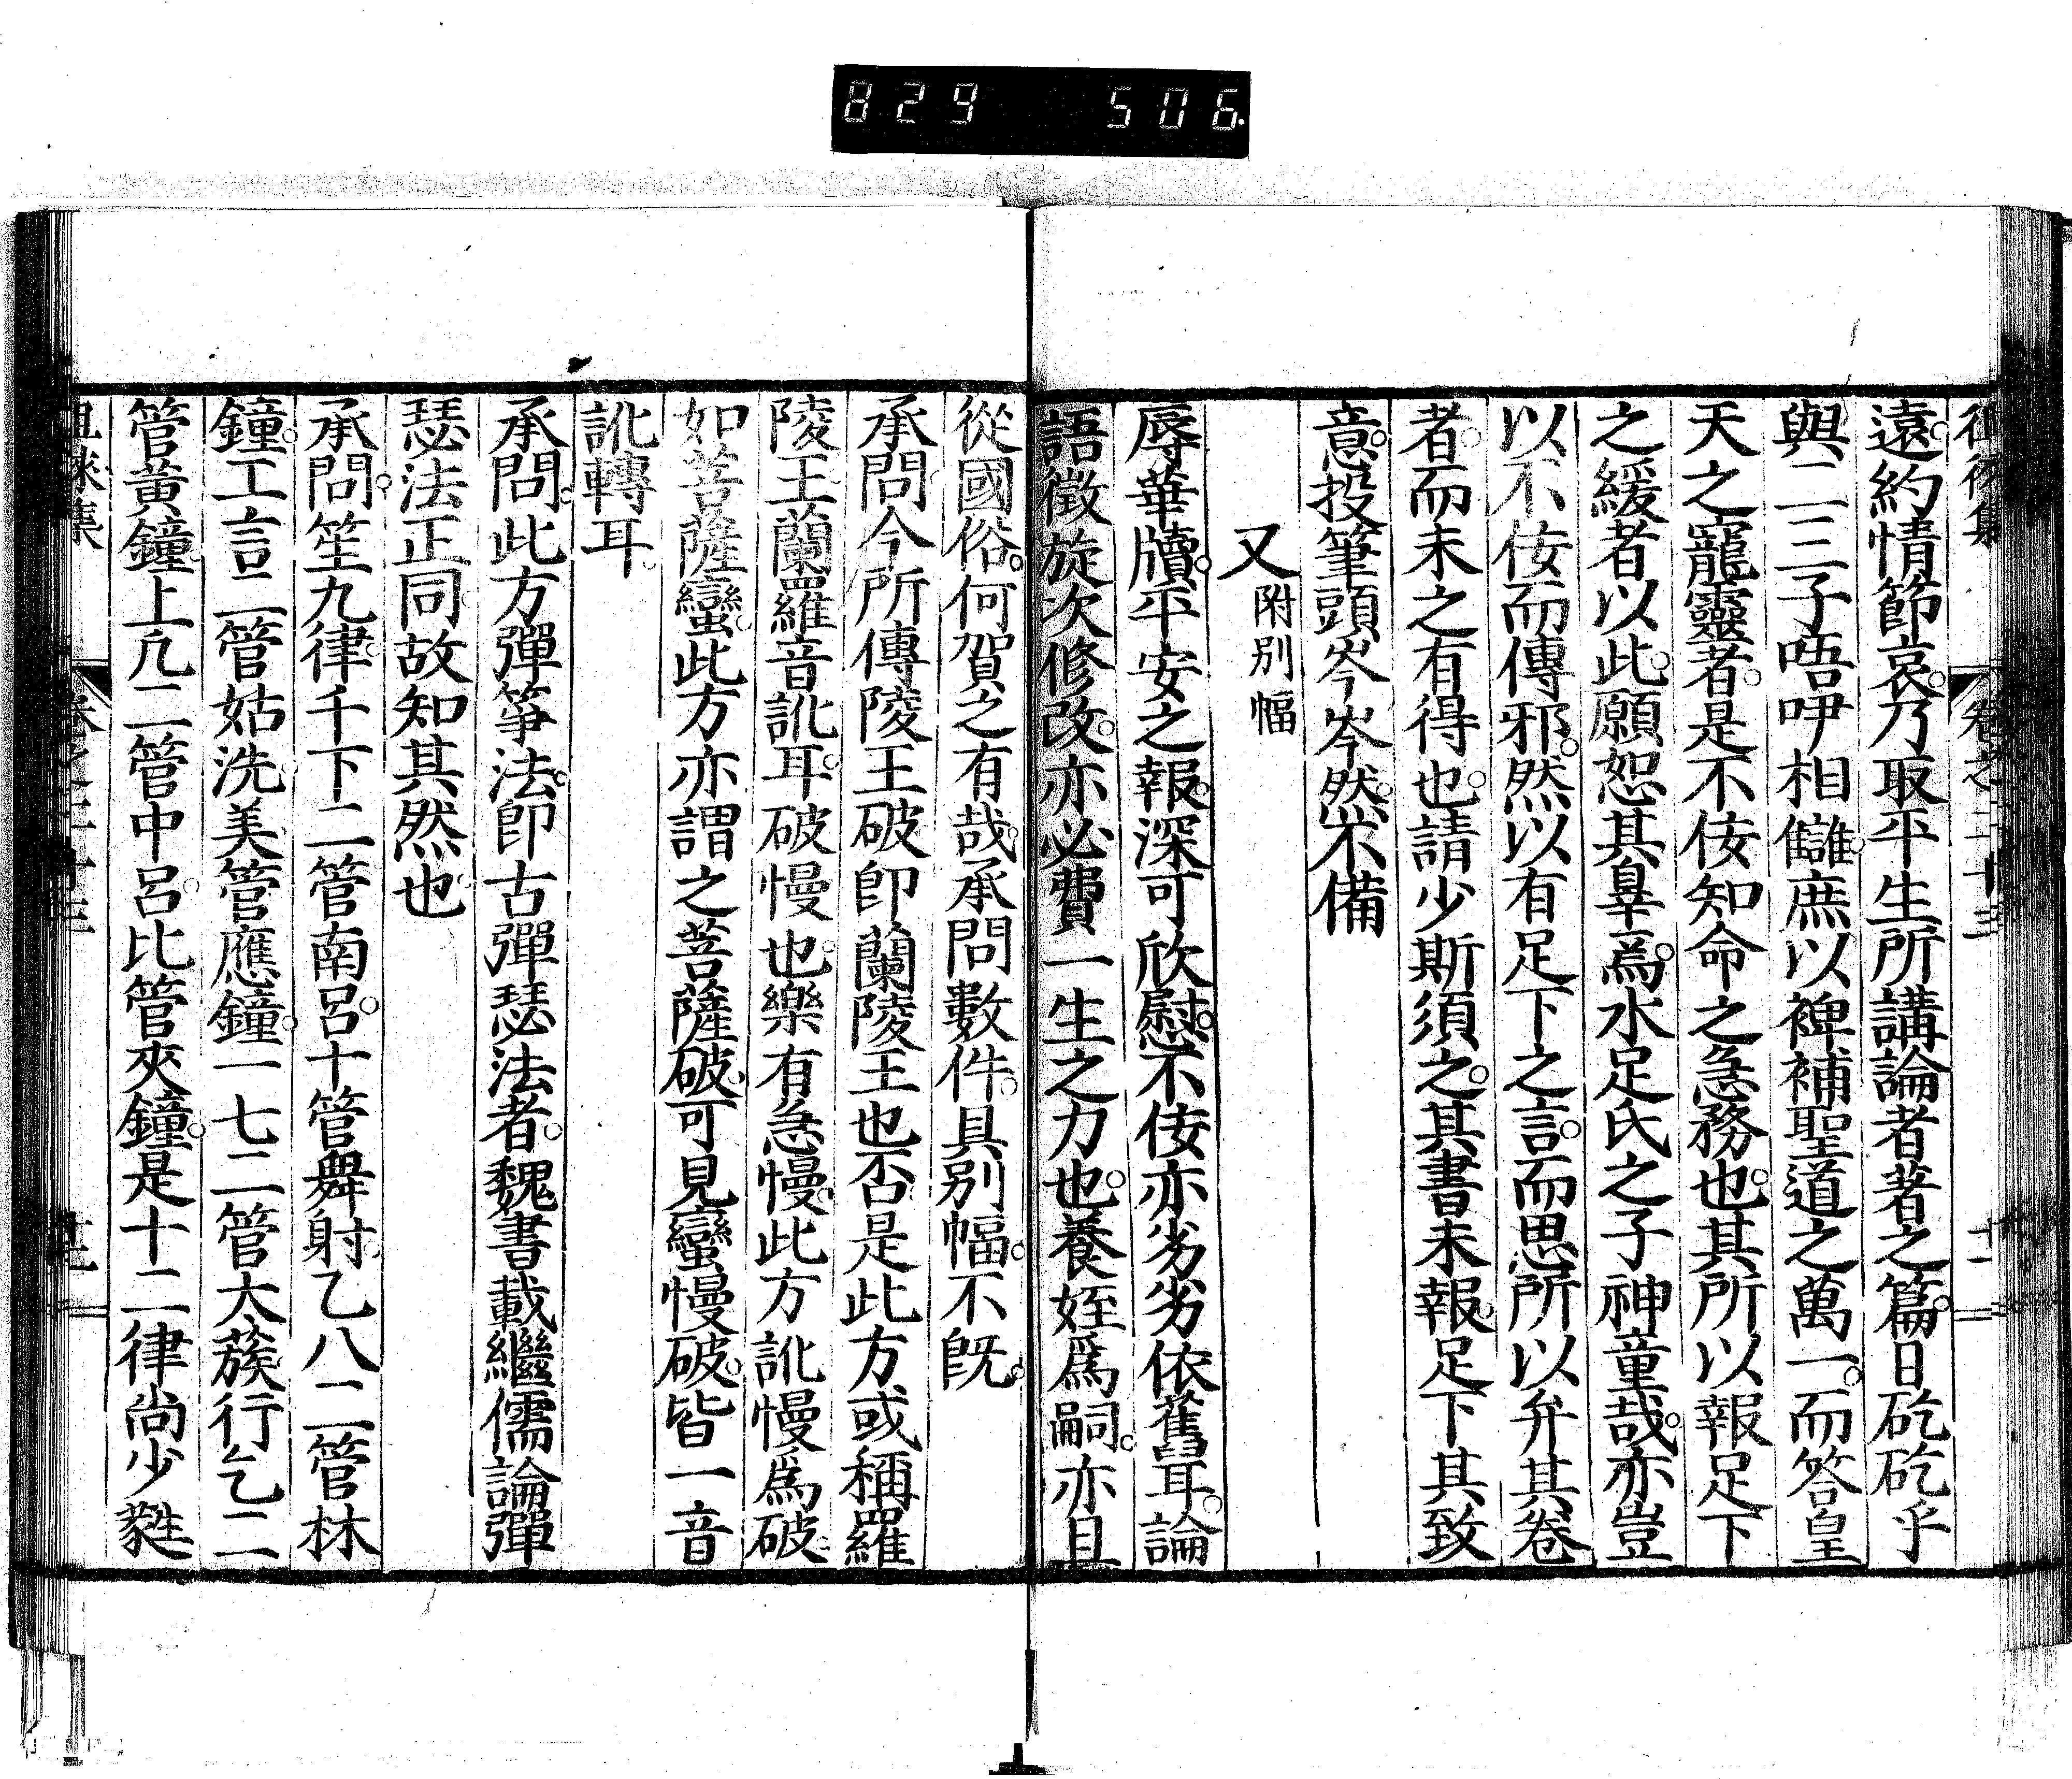 829 506
遠約情節哀乃取平生所講論者著之篇日矻矻乎
與二三子唔咿相讎庶以裨補聖道之萬一而答皇
天之寵靈者是不侫知命之急務也其所以報足下
之緩者以此願恕其辠焉水足氏之子神童哉亦豈
以不侫而傳邪然以有足下之言而思所以弁其卷
者而未之有得也請少斯須之其書未報足下其致
意投筆頭岑岑然不備
又附別幅
辱華牘平安之報深可欣慰不侫亦劣劣依舊耳論
語徵旋次修改亦必費一生之力也養姪爲嗣亦且
從國俗何賀之有哉承問數件具別幅不旣
承問今所傳陵王破卽蘭陵王也否是此方或稱羅
陵王蘭羅音訛耳破慢也樂有急慢此方訛慢爲破
如菩薩蠻此方亦謂之菩薩破可見蠻慢破皆一音
訛轉耳
承問此方彈箏法卽古彈瑟法者魏書載繼儒論彈
瑟法正同故知其然也
承問笙九律千下二管南呂十管舞射乙八二管林
鐘工言二管姑洗美管應鐘一七二管太蔟行乞二
管黃鐘上凢二管中呂比管夾鐘是十二律尚少蕤
徂徠集